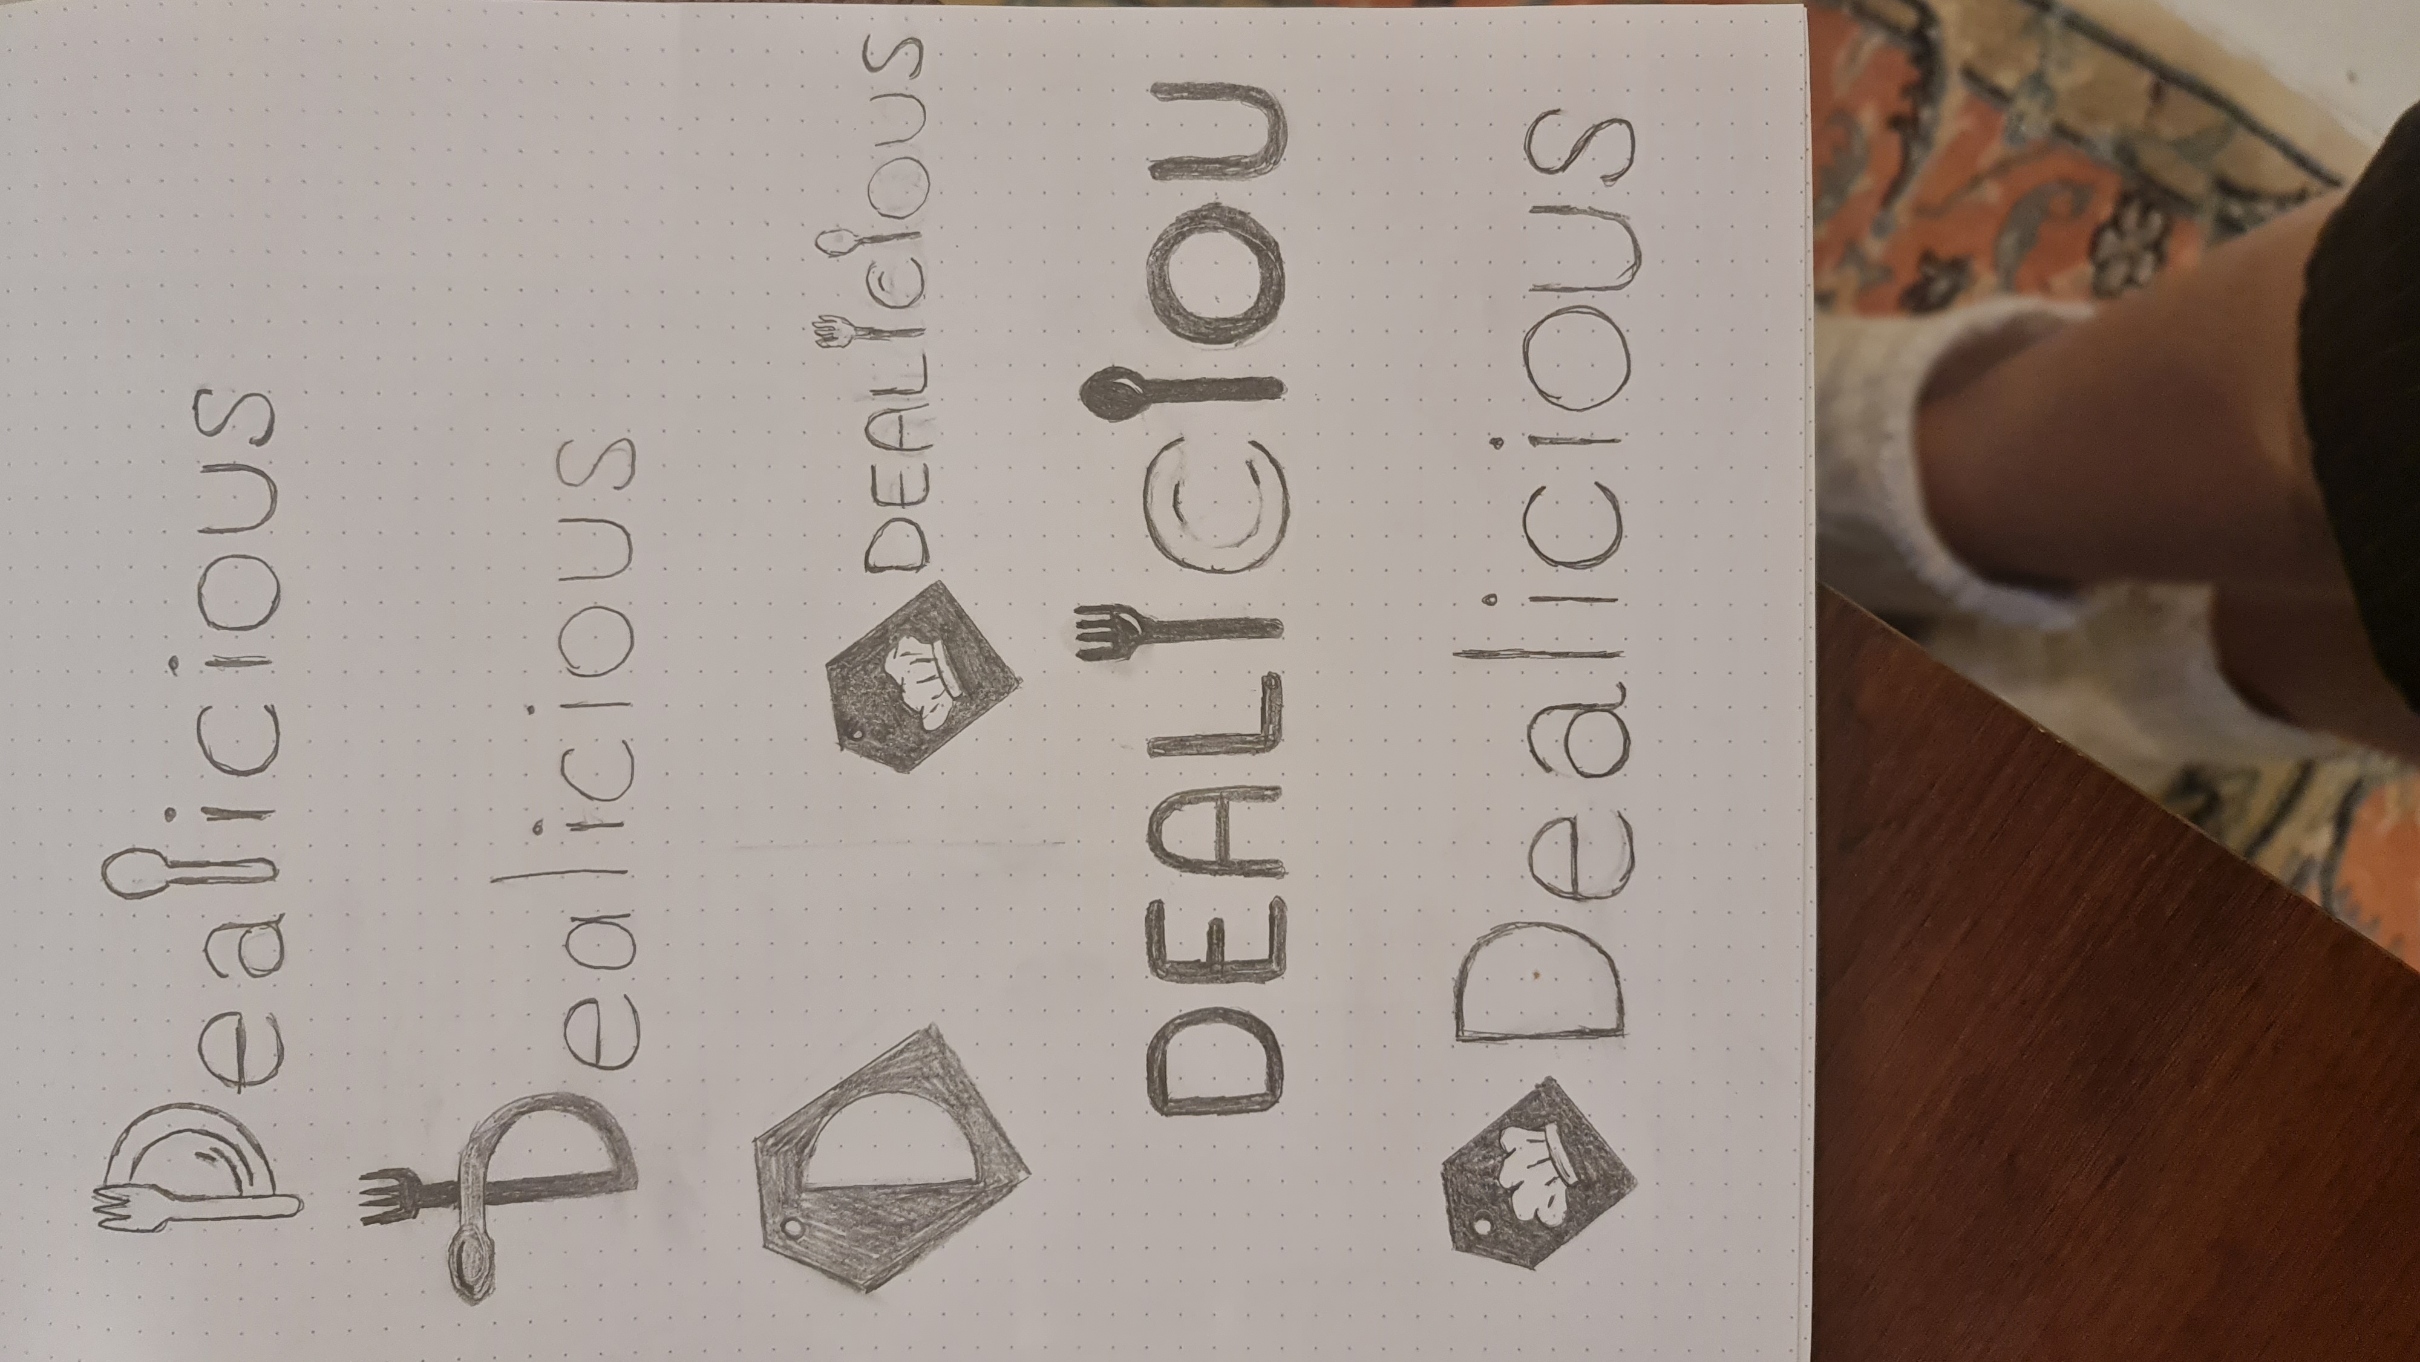 Dealicious
Dealicious
D
DEALICIOUS
DEALICIOU
Dealicious